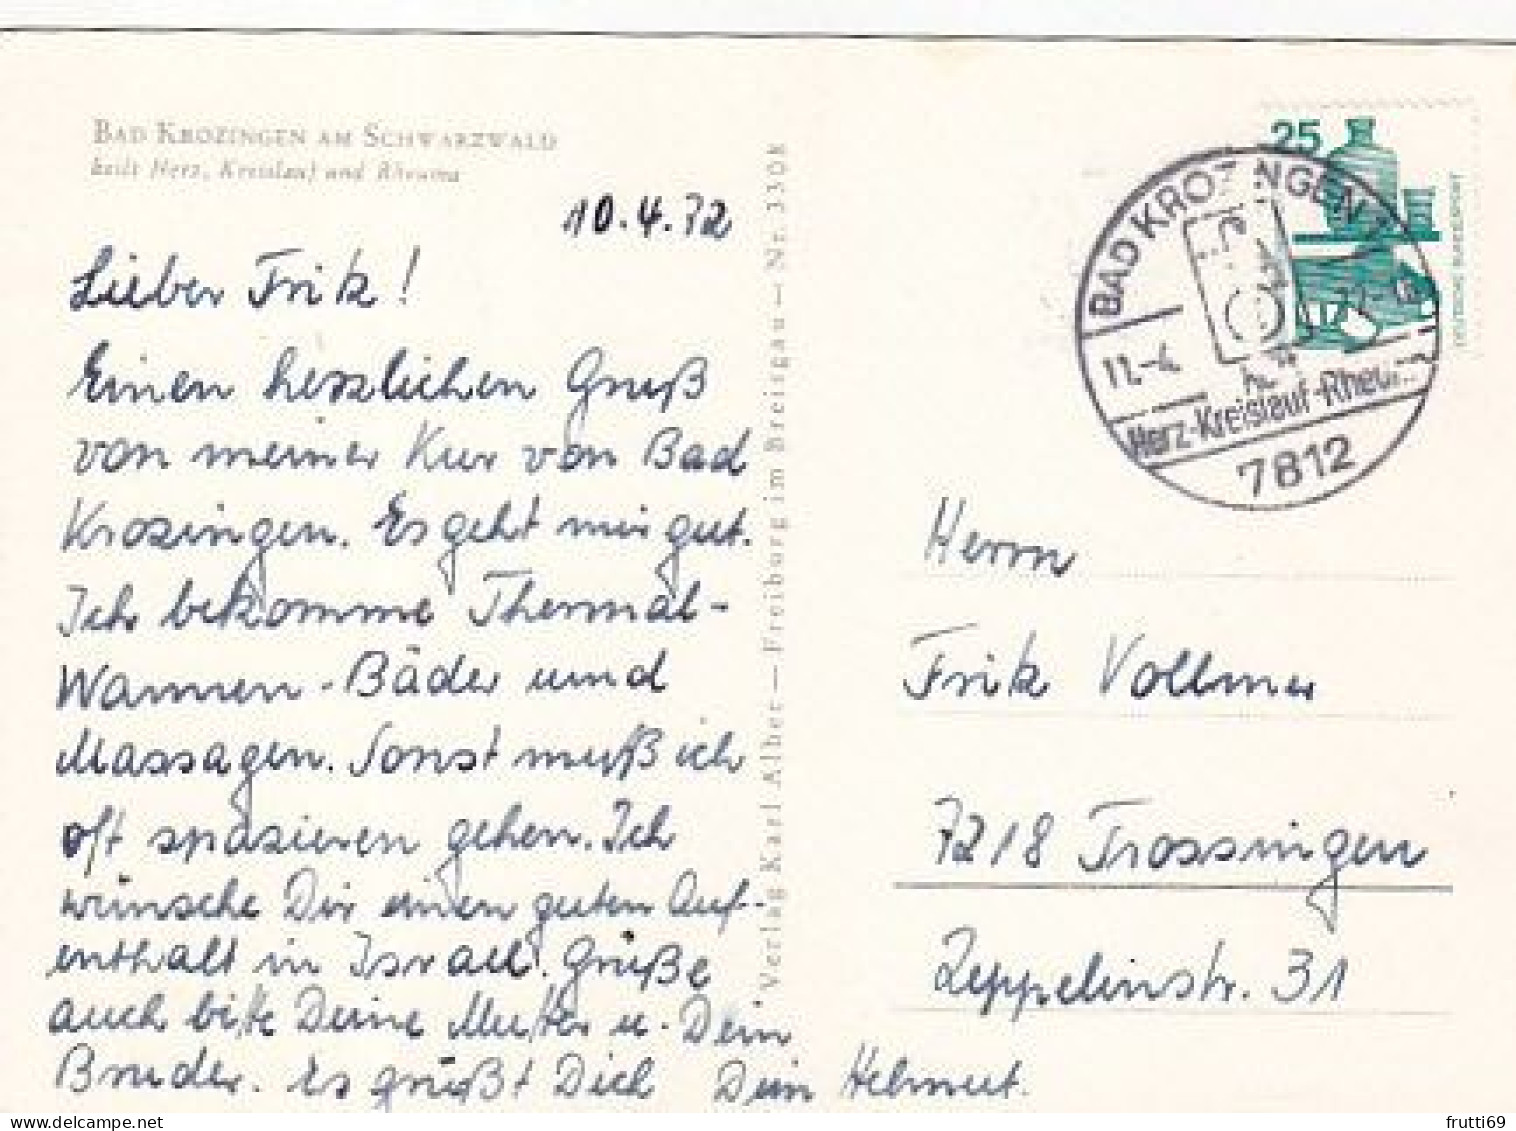 BAD KROZINGEN AM SCHWARZWALD
heilt Herz, Kreislauf und Rheuma
10.4.72
Lieber Fritz!
Einen herzlichen Gruß
von meiner Kur von Bad
Krozingen. Es geht mir gut.
Ich bekomme Thermal-
Wannen-Bäder und
Massagen. Sonst muß ich
oft spazieren gehen. Ich
wünsche Dir einen guten Auf-
enthalt in Israel. Grüße
auch bitte Deine Mutter u. Dein
Bruder. Es grüßt Dich Dein Helmut.
Verlag Karl Alber — Freiburg im Breisgau — Nr. 3308
25
DEUTSCHE BUNDESPOST
BAD KROZINGEN
11.-4.
Herz-Kreislauf-Rheuma
7812
Herrn
Fritz Vollmer
7218 Trossingen
Zeppelinstr. 31
frutti69